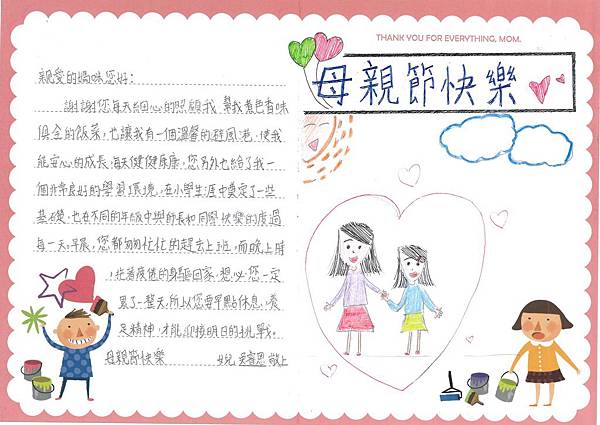 THANK YOU FOR EVERYTHING, MOM.
母親節快樂
親愛的媽咪您好:
謝謝您每天細心的照顧我,幫我煮色香味
俱全的飯菜,也讓我有一個溫馨的避風港,使我
能安心的成長,每天健健康康,您另外也給了我一
個非常良好的學習環境,在小學生涯中奠定了一些
基礎,也在不同的年級中與師長和同學快樂的度過
每一天。早晨,您都匆匆忙忙的趕去上班,而晚上時
,拖著疲倦的身軀回家,想必您一定
累了一整天,所以您要早點休息,養
足精神,才能迎接明日的挑戰。
母親節快樂
女兒 恩 敬上